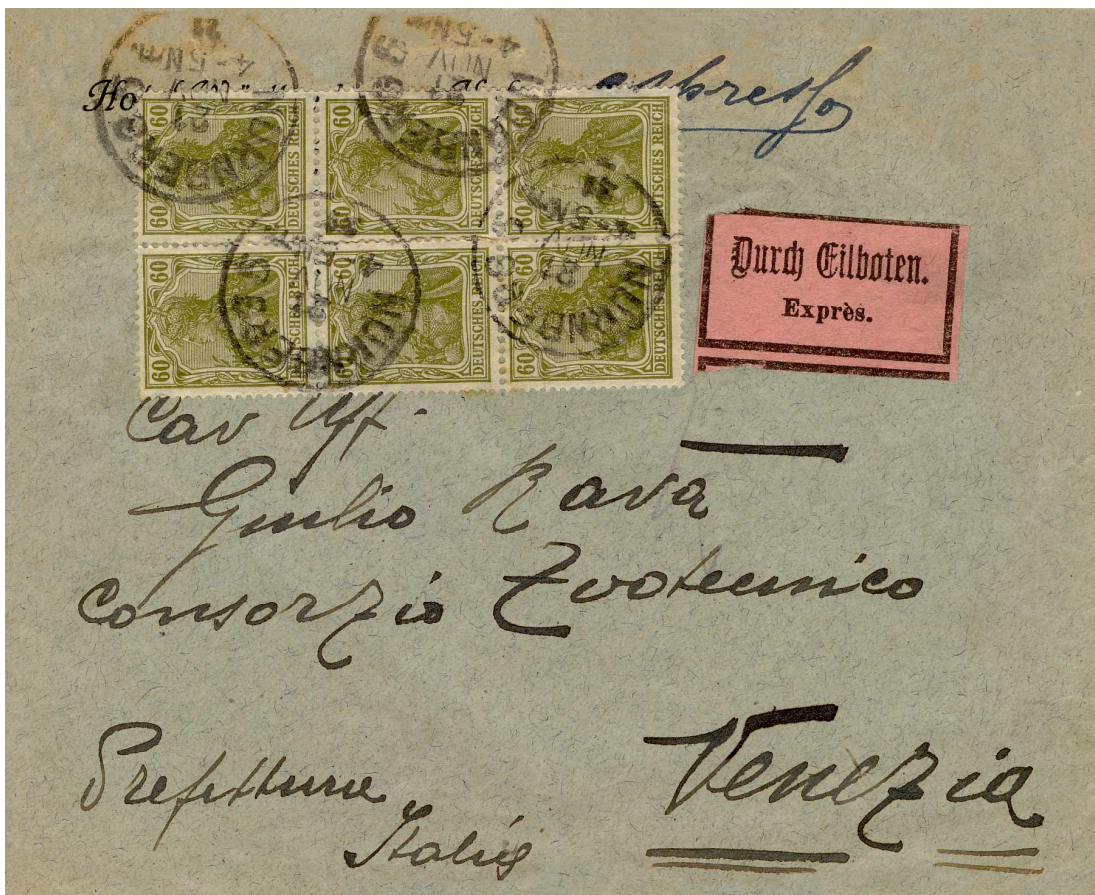 Ho
espresso
60 DEUTSCHES REICH 60 DEUTSCHES REICH 60 DEUTSCHES REICH
60 DEUTSCHES REICH 60 DEUTSCHES REICH 60 DEUTSCHES REICH
NÜRNBERG
21 NOV
4-5 Nm.
21
Durch Eilboten.
Exprès.
Cav Uff.
Giulio Ravà
Consorzio Zootecnico
Prefettura
Venezia
Italia